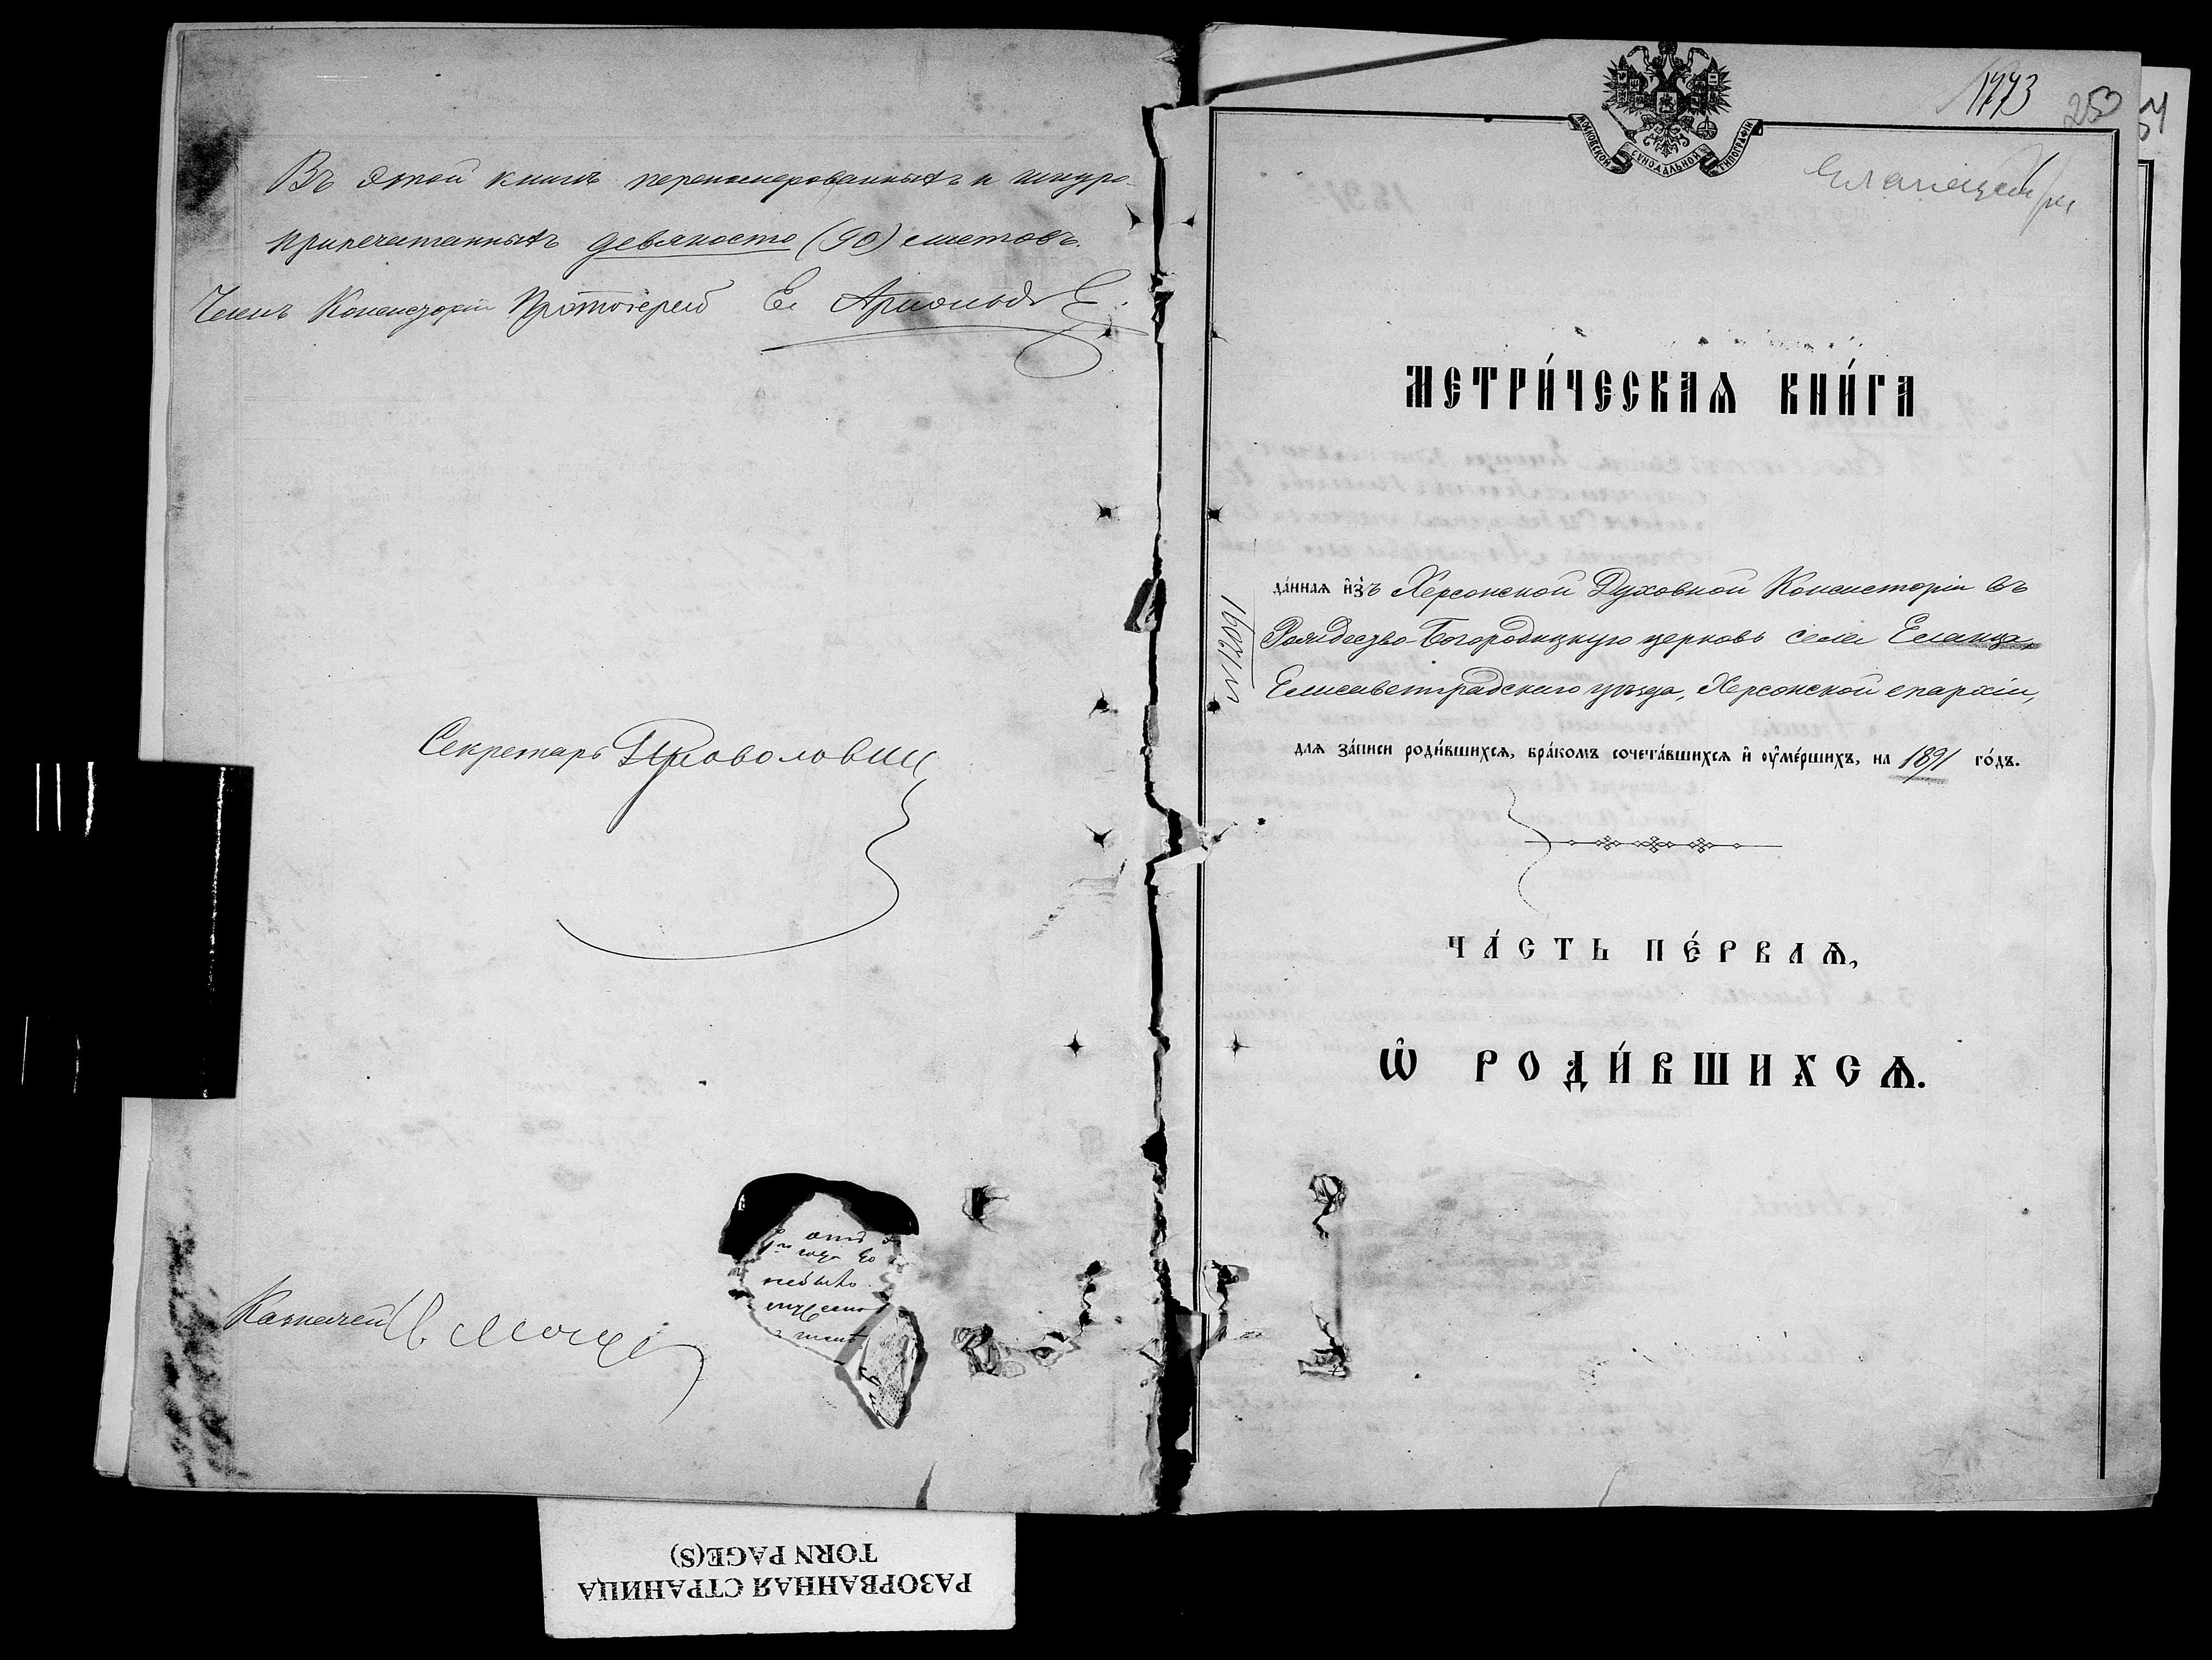 Въ этой книгѣ перенумерованныхъ и шнуро-
припечатанныхъ девяносто (90) листовъ.
Членъ Консисторіи Протоіерей Ел Арнольдъ
Секретарь
Казначей
отъ
небыло
МОСКОВСКОЙ СѴНОДАЛЬНОЙ ТИПОГРАФІИ
1773
252
МЕТРИ́ЧЕСКАѦ КНИ́ГА
да́ннаѧ и҆зъ Херсонской Духовной Консисторіи въ
Рождество-Богородицкую церковь села Еланца,
Елисаветградскаго уѣзда, Херсонской епархіи,
длѧ за́писи роди́вшихсѧ, бра́комъ сочета́вшихсѧ и҆ ᲂу҆ме́ршихъ, на 1891 го́дъ.
16021
ЧА́СТЬ ПЕ́РВАѦ,
Ѡ҆ РОДИ́ВШИХСѦ.
РАЗОРВАННАЯ СТРАНИЦА
TORN PAGE(S)